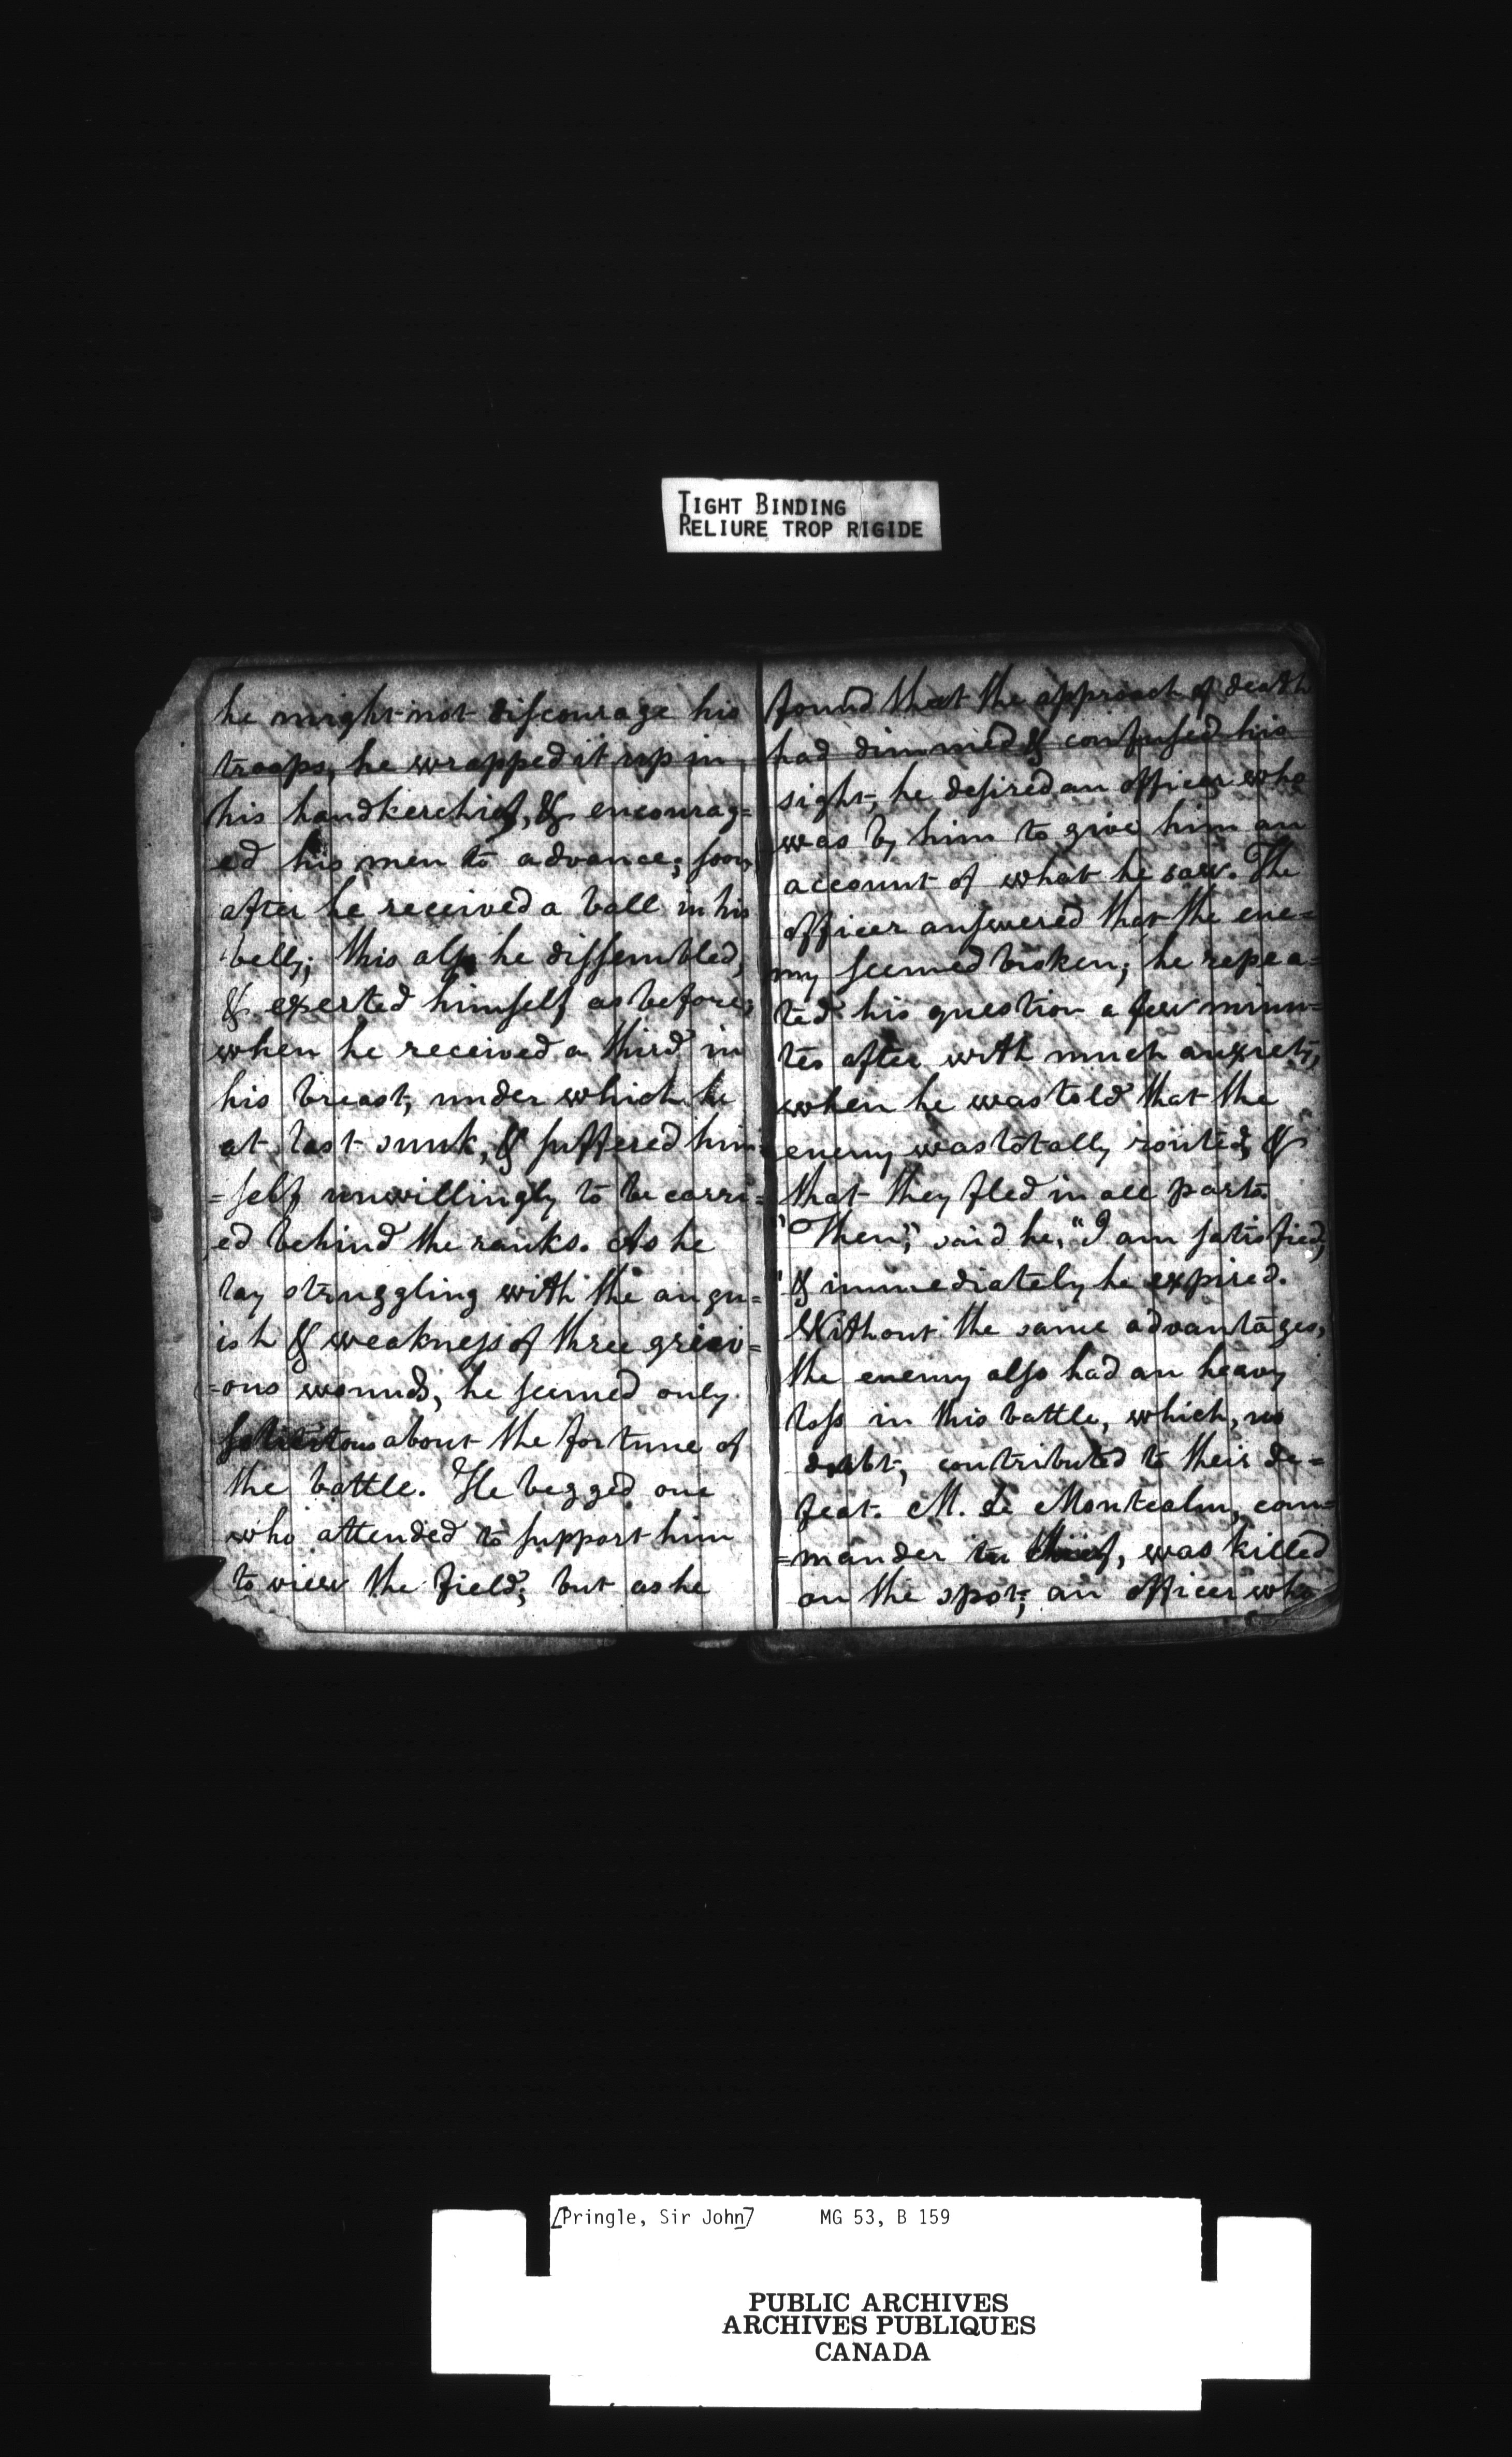 TIGHT BINDING
RELIURE TROP RIGIDE
he might not diſcourage his
troops, he wrapped it up in
his handkerchief, & encourag=
ed his men to advance; ſoon
after he received a ball in his
belly; this alſo he diſſembled,
& exerted himſelf as before;
when he received a third in
his breast, under which he
at last sunk, & ſuffered him=
=ſelf unwillingly to be carri=
ed behind the ranks. As he
lay struggling with the angu=
ish & weakneſs of three griev=
=ous wounds, he ſeemed only
ſolicitous about the fortune of
the battle. He begged one
who attended to ſupport him
to view the field; but as he
found that the approach of death
had dimmed & confuſed his
sight, he deſired an officer who
was by him to give him an
account of what he saw. The
officer anſwered that the ene=
my ſeemed broken; he repea=
ted his question a few minu=
tes after with much anxiety,
when he was told that the
enemy was totally routed, &
that they fled in all parts.
"Then," said he, "I am ſatisfied,"
& immediately he expired.
Without the same advantages,
the enemy alſo had an heavy
loſs in this battle, which, no
doubt, contributed to their de=
feat. M. de Montcalm, com=
=mander in chief, was killed
on the spot; an officer who
[Pringle, Sir John] MG 53, B 159
PUBLIC ARCHIVES
ARCHIVES PUBLIQUES
CANADA